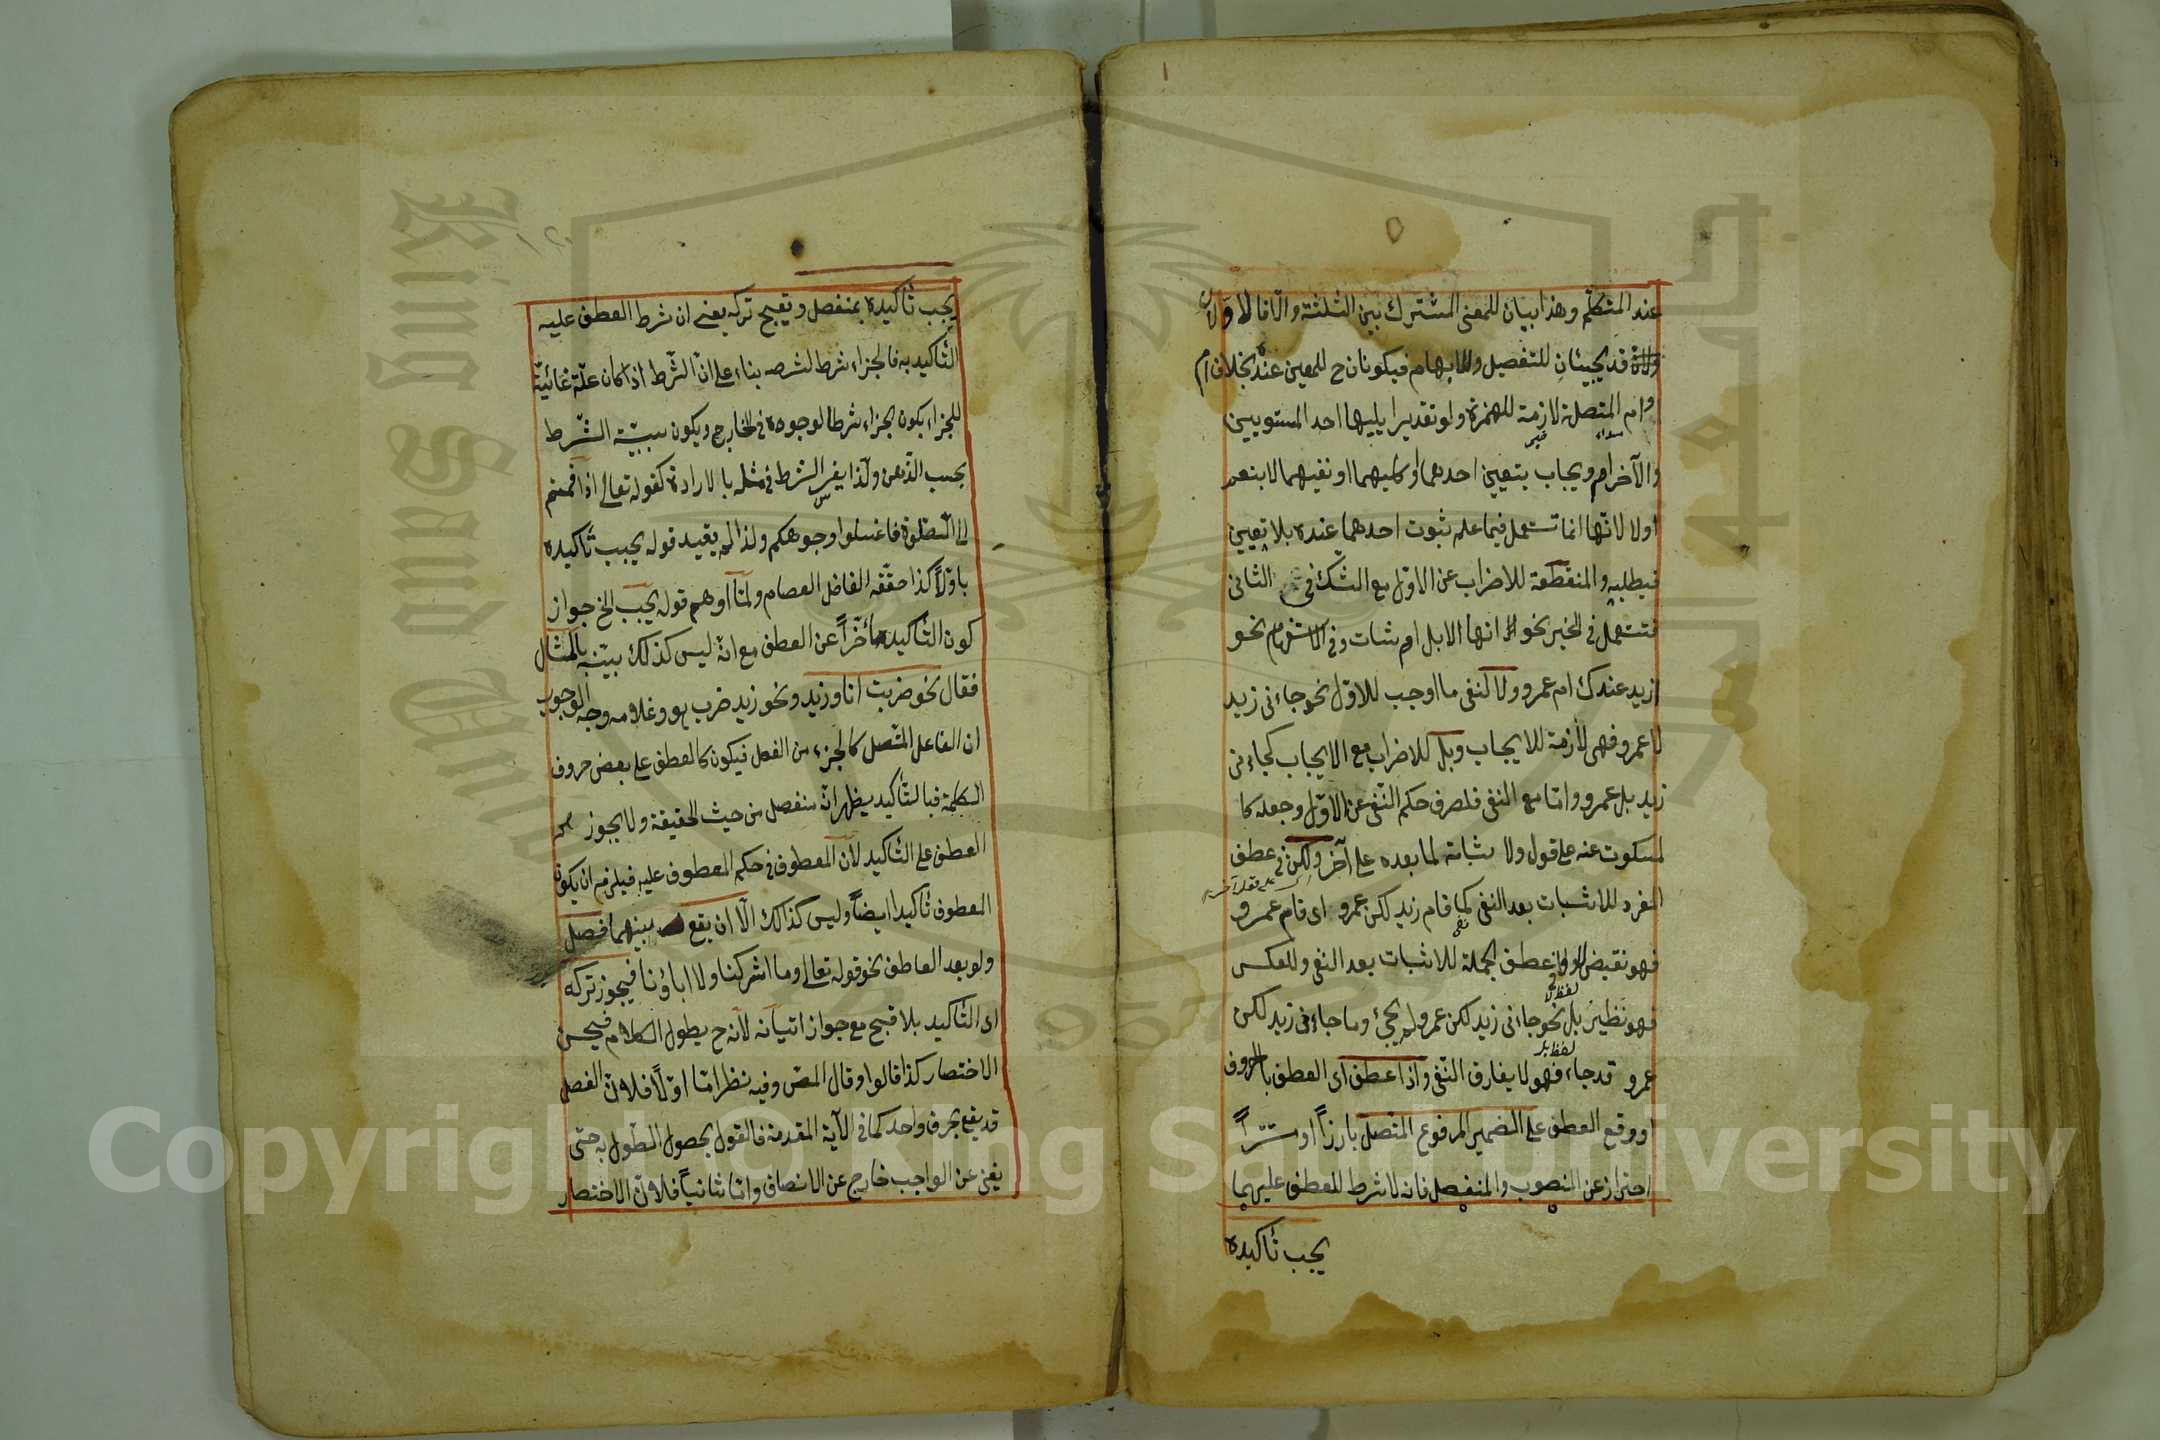 عند المتكلم وهذا بيان للمعنى المشترك بين الثلثة والا فالاولان
قد يجيئان للتفصيل وللابهام فيكونان ح للمعين عنده بخلاف ام
وام المتصلة لازمة للهمزة ولو تقديرا يليها احد المستويين
سواء غير
والآخر ام ويجاب بتعيين احدهما او كليهما او نفيهما لا بنعم
اولا لانها انما تستعمل فيما علم ثبوت احدهما عنده بلا تعيين
فيطلبه والمنقطعة للاضراب عن الاول مع الشك في الثاني
فتستعمل في الخبر نحو انها الابل ام شات وفي الاستفهام نحو
ازيد عندك ام عمرو ولا لنفى ما اوجب للاول نحو جاءنى زيد
لا عمرو فهى لازمة للايجاب وبل للاضراب مع الايجاب كجاءنى
زيد بل عمرو واما مع النفى فلصرف حكم النفى عن الاول وجعله كا
لمسكوت عنه على قول ولا ثباته لما بعده على آخر ولكن في عطف
المفرد للاثبات بعد النفى كما قام زيد لكن عمرو اى قام عمرو
فهو نقيض لا وفي عطف الجملة للاثبات بعد النفى وللعكس
لفظ لا
فهو نظير بل نحو جاءنى زيد لكن عمرو لم يجئ وما جاءنى زيد لكن
لفظ بل
عمرو قد جاء فهو لا يفارق النفى واذا عطف اى العطف بالحروف
او وقع العطف على الضمير المرفوع المتصل بارزاً او مستتراً
احتراز عن المنصوب والمنفصل فانه لا شرط للعطف عليهما
يجب تأكيده
يجب تأكيده بمنفصل ويقبح تركه يعنى ان شرط العطف عليه
التأكيد به فالجزاء شرط لشرطه بناء على ان الشرط اذا كان علة غائية
للجزاء يكون الجزاء شرطا لوجوده في الخارج ويكون سببية الشرط
بحسب الذهن ولذا يفسر الشرط في مثله بالارادة كقوله تعالى اذا قمتم
الى الصلوة فاغسلوا وجوهكم ولذا لم يقيد قوله يجب تأكيده
باولاً كذا حققه الفاضل العصام ولما اوهم قوله يجب الخ جواز
كون التأكيد مأخراً عن العطف مع انه ليس كذلك بينه بالمثال
فقال نحو ضربت انا وزيد ونحو زيد ضرب هو وغلامه وجه الوجوب
ان الفاعل المتصل كالجزء من الفعل فيكون كالعطف على بعض حروف
الكلمة فبالتأكيد يظهر انه منفصل من حيث الحقيقة ولا يجوز
العطف على التأكيد لان المعطوف في حكم المعطوف عليه فيلزم ان يكون
المعطوف تأكيدا ايضاً وليس كذالك الا ان يقع بينهما فصل
ولو بعد العاطف نحو قوله تعالى وما اشركنا ولا اباؤنا فيجوز تركه
اى التأكيد بلا قبح مع جواز اتيانه لانه ح يطول الكلام فيحسن
الاختصار كذا قالوا وقال المص وفيه نظر اما اولاً فلان الفصل
قد يقع بحرف واحد كما في الآية المقدمة فالقول بحصول الطول به حتى
يغنى عن الواجب خارج عن الانصاف واما ثانياً فلان الاختصار
Copyright © King Saud University
King Saud University
1957